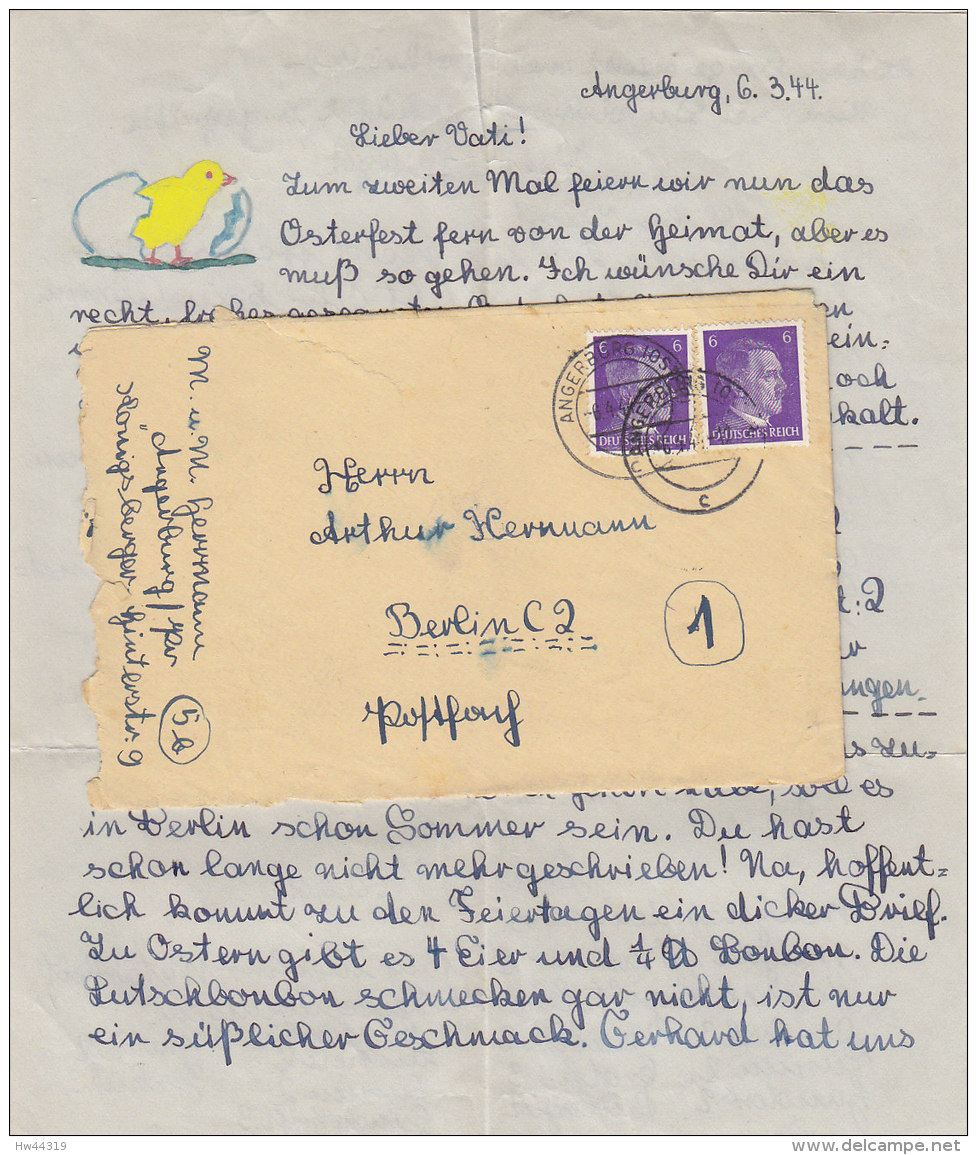 Angerburg, 6. 3. 44.
Lieber Vati!
Zum zweiten Mal feiern wir nun das
Osterfest fern von der Heimat, aber es
muß so gehen. Ich wünsche Dir ein
recht
ein=
och
kalt.
t: 2
r
ngen.
s zu-
soll es
in Berlin schon Sommer sein. Du hast
schon lange nicht mehr geschrieben! Na, hoffent=
lich kommt zu den Feiertagen ein dicker Brief.
Zu Ostern gibt es 4 Eier und Bonbon. Die
Lutschbonbon schmecken gar nicht, ist nur
ein süßlicher Geschmack. Gerhard hat uns
6 6
6 6
DEUTSCHES REICH
DEUTSCHES REICH
ANGERBURG (OS
ANGERBURG (O
c
Herrn
Arthur Herrmann
Berlin C 2
1
Postfach
M. u. M. Herrmann
Angerburg / Opr
Königsberger Hinterstr. 9
5b
Hw44319
delcampe.net